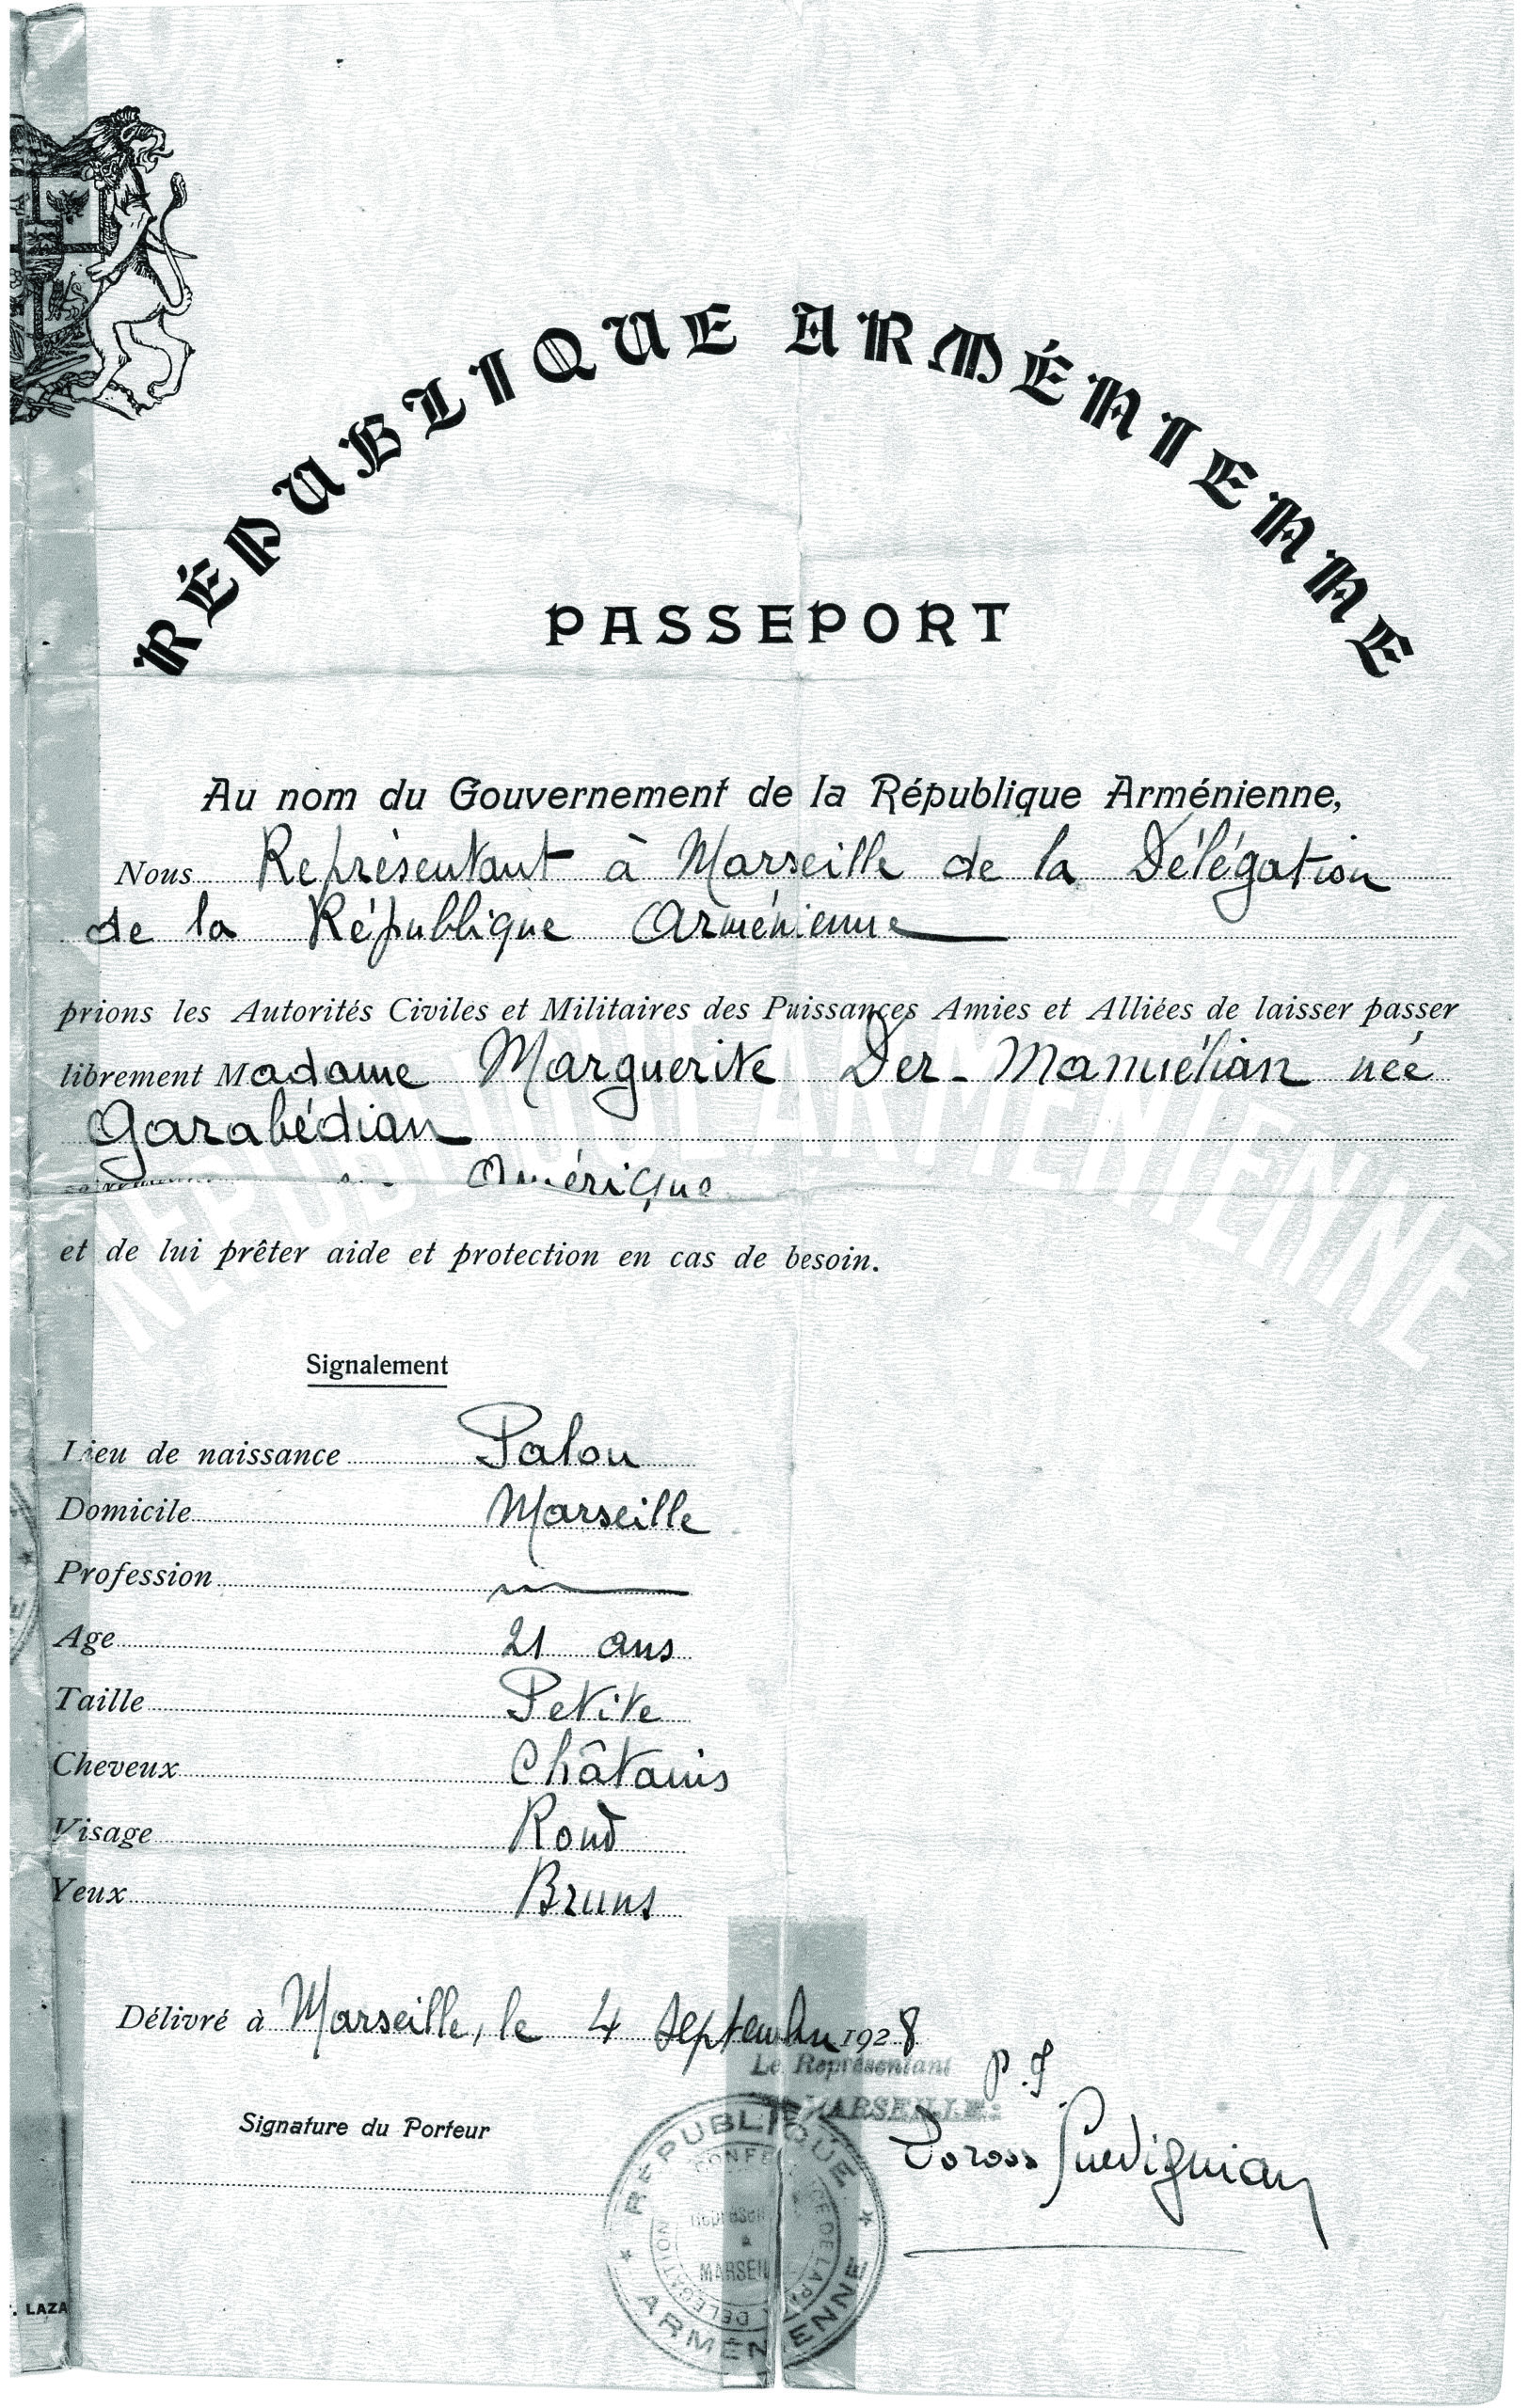 RÉPUBLIQUE ARMÉNIENNE
PASSEPORT
Au nom du Gouvernement de la République Arménienne,
Nous Représentant à Marseille de la Délégation
de la République Arménienne
prions les Autorités Civiles et Militaires des Puissances Amies et Alliées de laisser passer
librement Madame Marguerite Der-Manuélian née
Garabédian
Amérique
et de lui prêter aide et protection en cas de besoin.
REPUBLIQUE ARMENIENNE
Signalement
Lieu de naissance Palou
Domicile Marseille
Profession
Age 21 ans
Taille Petite
Cheveux Châtains
Visage Rond
Yeux Bruns
Délivré à Marseille, le 4 Septembre 1928
Le Représentant
MARSEILLE:
Signature du Porteur
RÉPUBLIQUE ARMÉNIENNE
DÉLÉGATION
MARSEIL
. LAZA